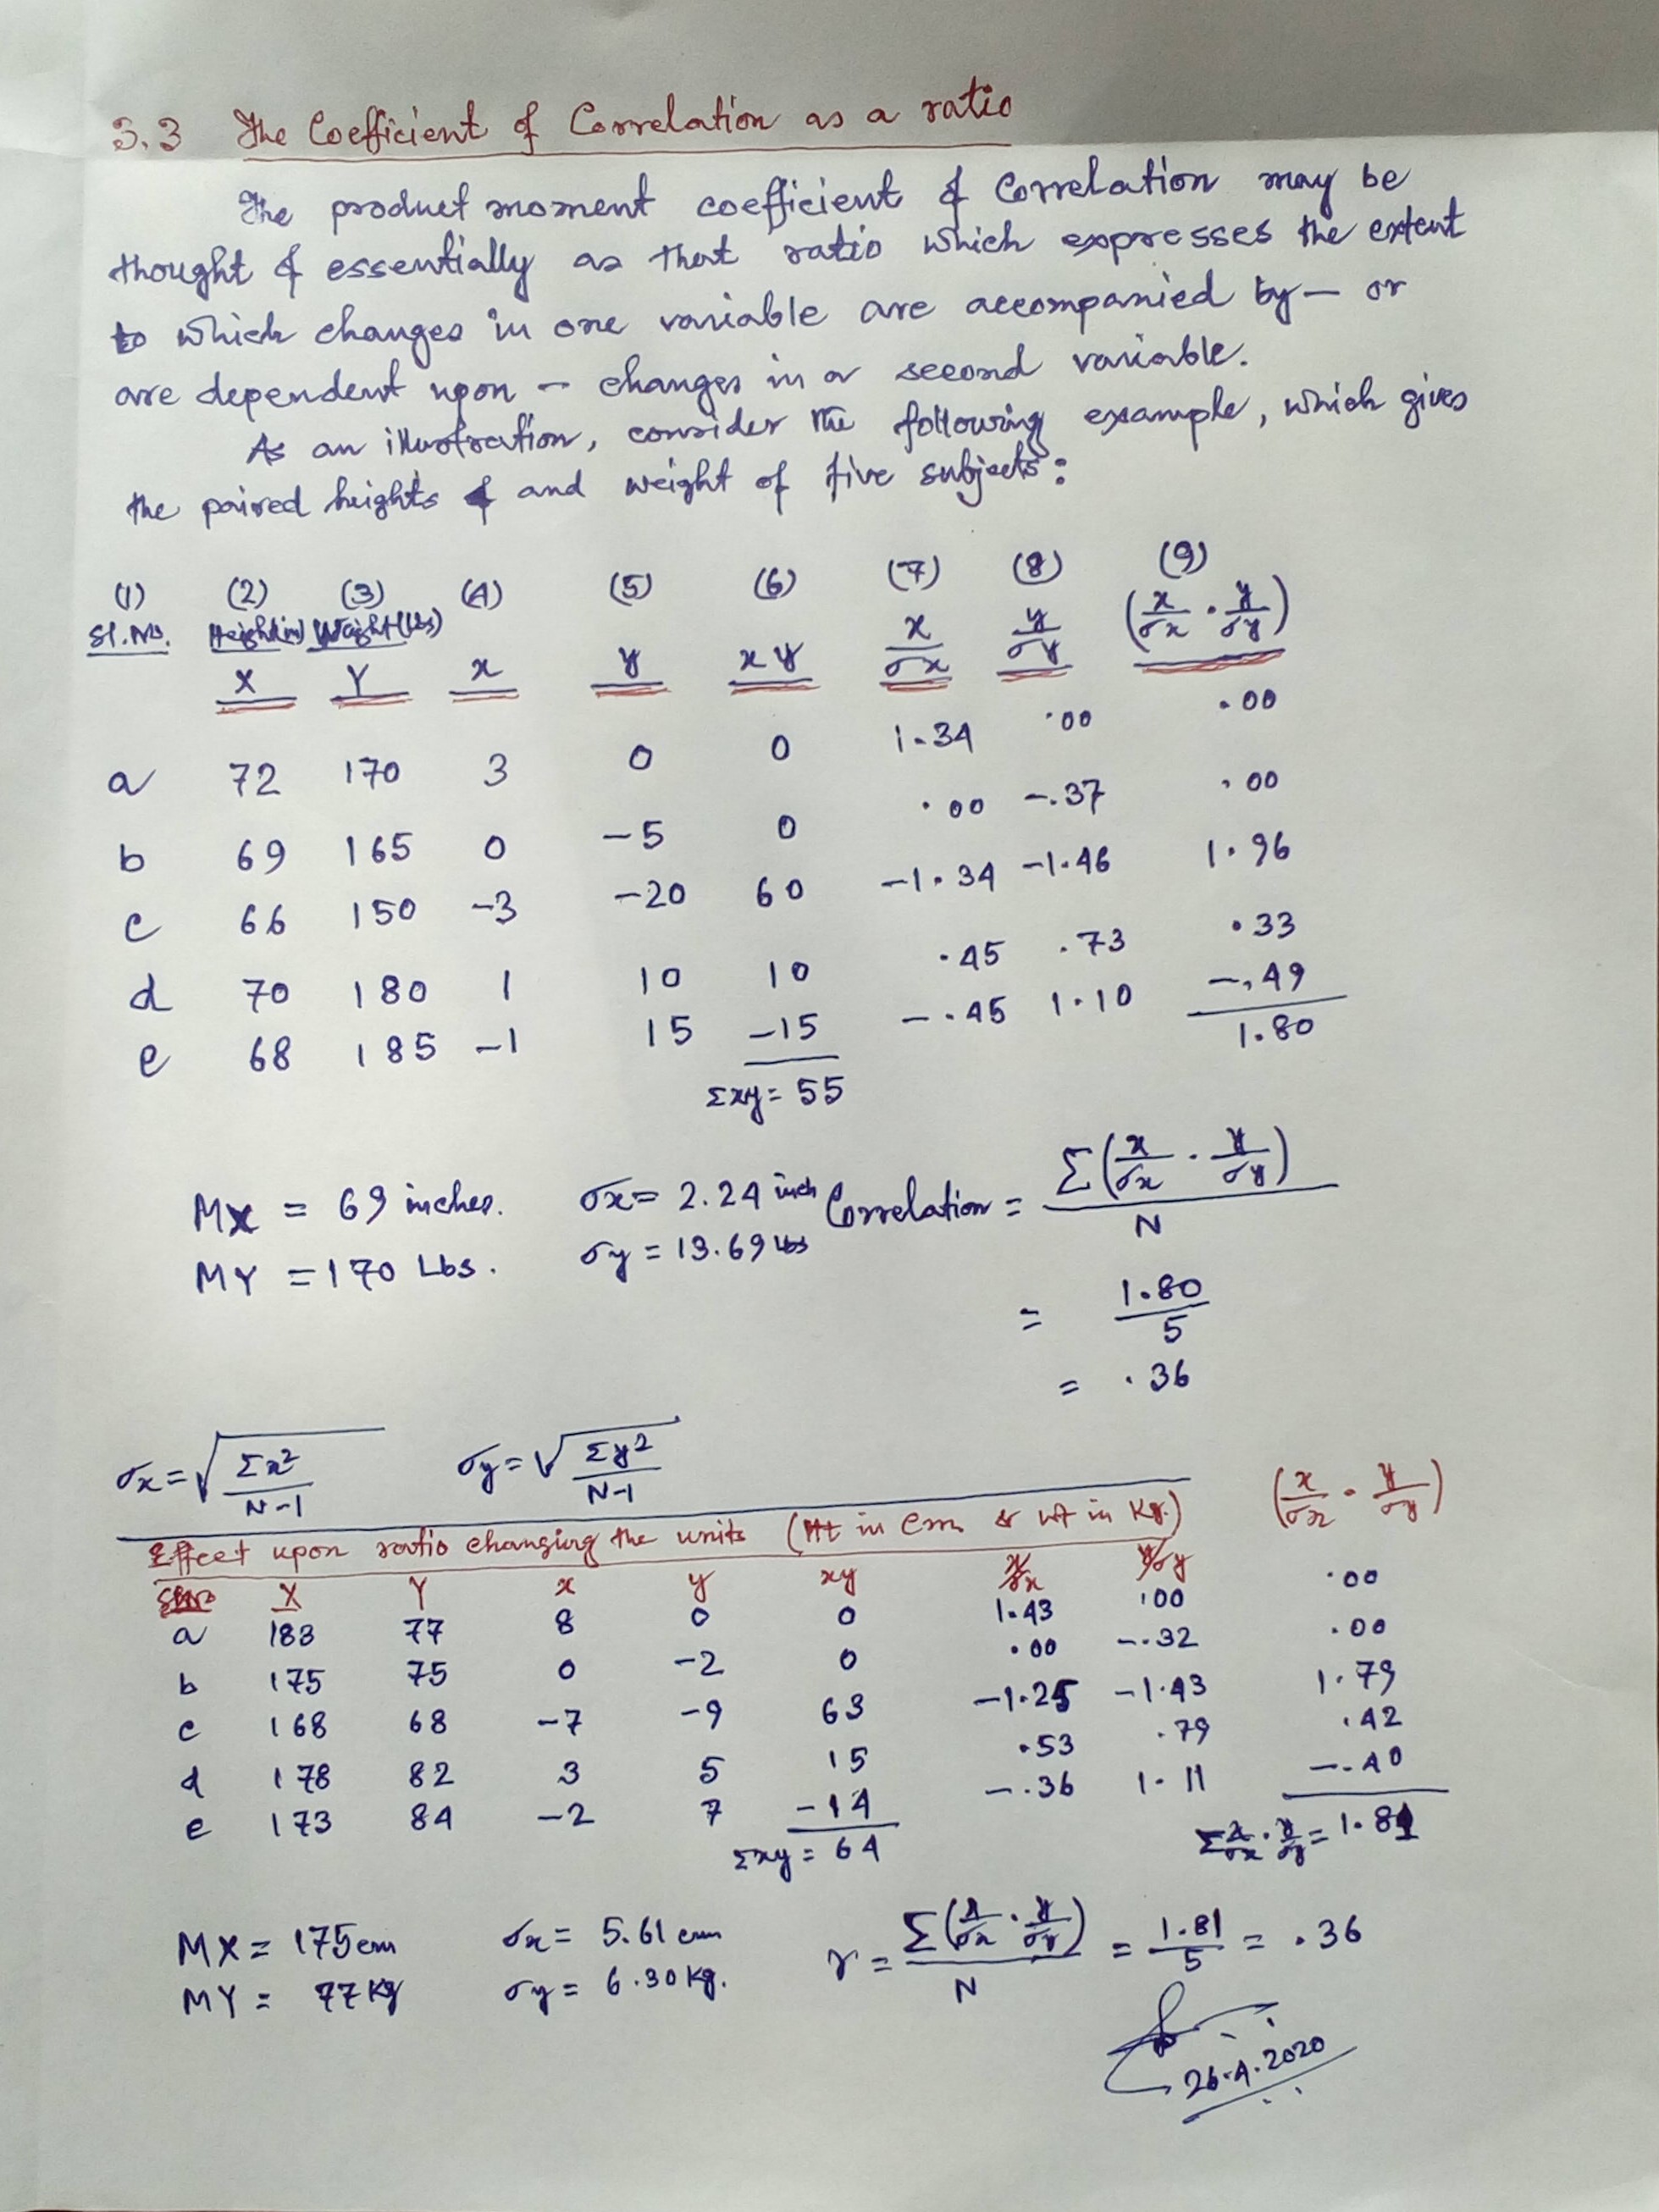 3.3 The Coefficient of Correlation as a ratio
The product moment coefficient of Correlation may be
thought of essentially as that ratio which expresses the extent
to which changes in one variable are accompanied by — or
are dependent upon — changes in a second variable.
As an illustration, consider the following example, which gives
the paired heights and weight of five subjects:
(1) (2) (3) (4) (5) (6) (7) (8) (9)
Sl.No. Height(in) Weight(Lbs)
X Y x y xy x/σx y/σy (x/σx · y/σy)
a 72 170 3 0 0 1.34 .00 .00
b 69 165 0 -5 0 .00 -.37 .00
c 66 150 -3 -20 60 -1.34 -1.46 1.96
d 70 180 1 10 10 .45 .73 .33
e 68 185 -1 15 -15 -.45 1.10 -.49
Σxy = 55 1.80
MX = 69 inches. σx = 2.24 inch Correlation = Σ(x/σx · y/σy) / N
MY = 170 Lbs. σy = 13.69 Lbs
= 1.80 / 5
= .36
σx = √(Σx² / N-1) σy = √(Σy² / N-1)
Effect upon ratio changing the units (Ht in Cm & wt in Kg.) (x/σx · y/σy)
Sl.No X Y x y xy x/σx y/σy
a 183 77 8 0 0 1.43 .00 .00
b 175 75 0 -2 0 .00 -.32 .00
c 168 68 -7 -9 63 -1.25 -1.43 1.79
d 178 82 3 5 15 .53 .79 .42
e 173 84 -2 7 -14 -.36 1.11 -.40
Σxy = 64 Σ x/σx · y/σy = 1.81
MX = 175 cm σx = 5.61 cm r = Σ(x/σx · y/σy) / N = 1.81 / 5 = .36
MY = 77 Kg σy = 6.30 Kg.
26.4.2020